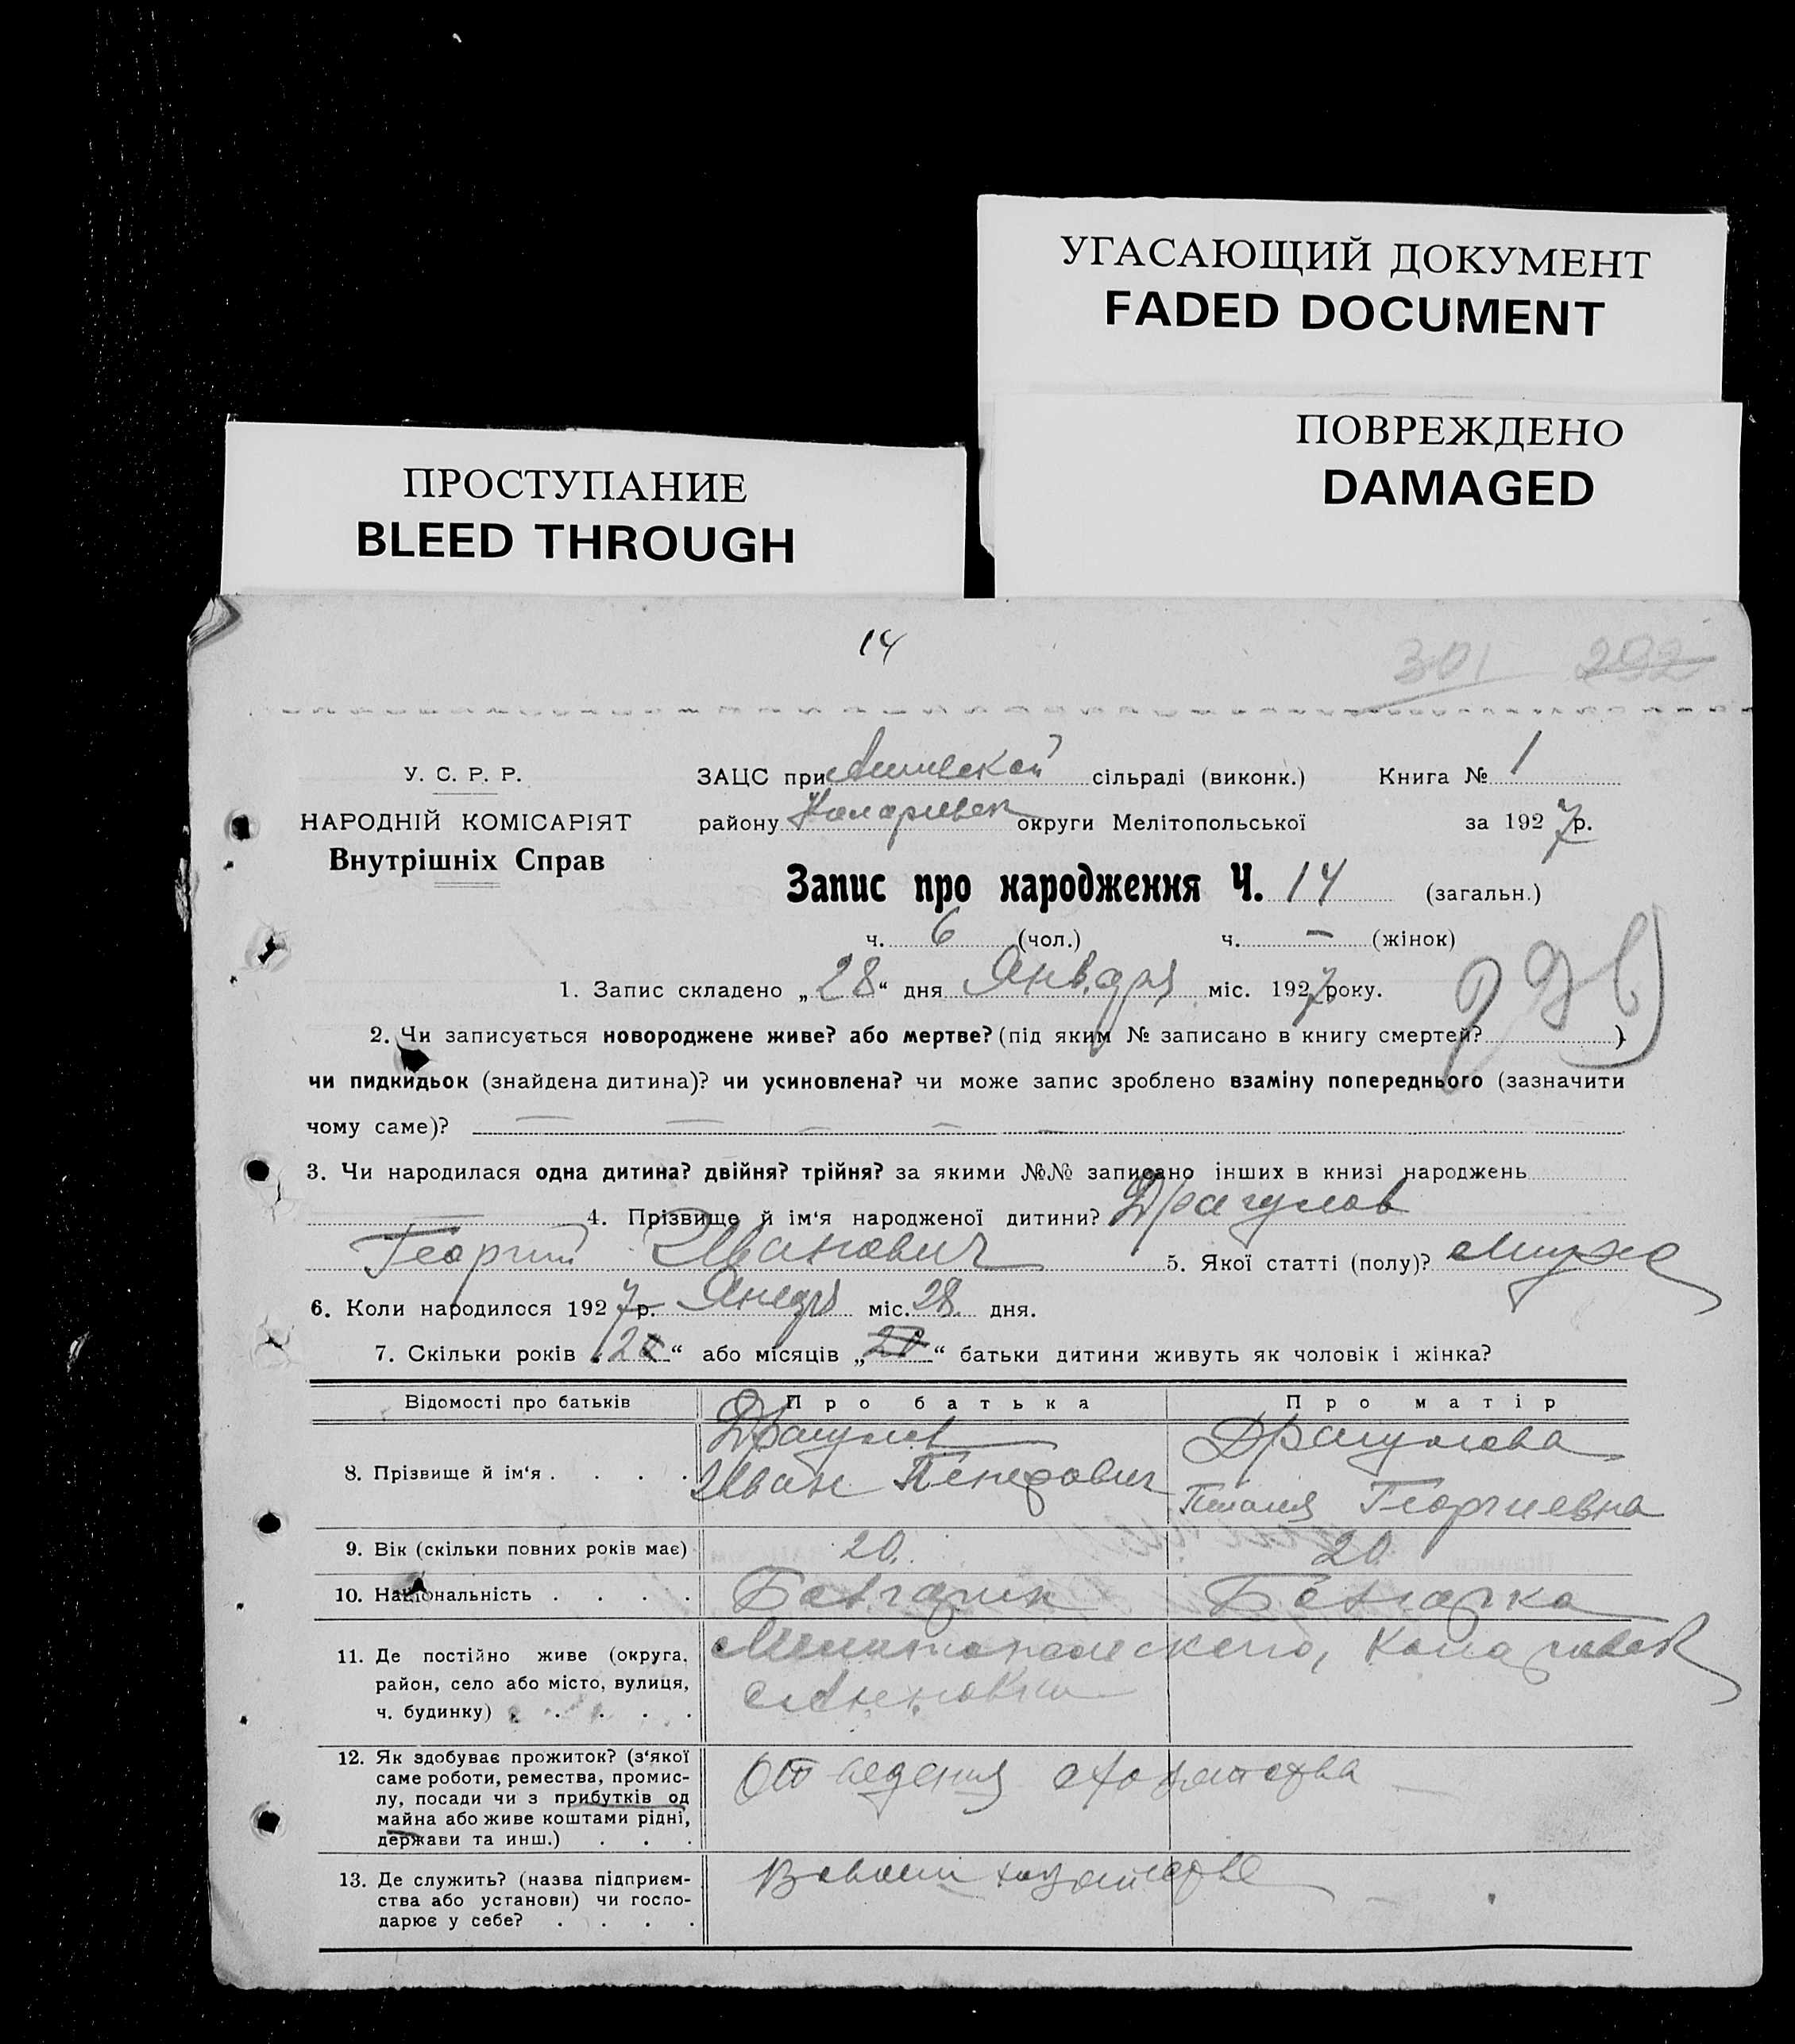 УГАСАЮЩИЙ ДОКУМЕНТ
FADED DOCUMENT
ПОВРЕЖДЕНО
DAMAGED
ПРОСТУПАНИЕ
BLEED THROUGH
14
301 292
У. С. Р. Р.
НАРОДНІЙ КОМІСАРІЯТ
Внутрішніх Справ
ЗАЦС при сільраді (виконк.) Книга № 1
району округи Мелітопольської за 1927 р.
Запис про народження Ч. 14 (загальн.)
ч. 6 (чол.) ч. – (жінок)
1. Запис складено „28“ дня Января міс. 1927 року.
2. Чи записується новороджене живе? або мертве? (під яким № записано в книгу смертей? )
чи пидкидьок (знайдена дитина)? чи усиновлена? чи може запис зроблено взаміну попереднього (зазначити
чому саме)?
3. Чи народилася одна дитина? двійня? трійня? за якими №№ записано інших в книзі народжень
4. Прізвище й ім‘я народженої дитини? Драгулов
Георгий Иванович 5. Якої статті (полу)?
6. Коли народилося 1927 р. міс. 28 дня.
7. Скільки років „ “ або місяців „ “ батьки дитини живуть як чоловік і жінка?
Відомості про батьків Про батька Про матір
8. Прізвище й ім‘я . . . . Драгулов Драгулова
Иван Георгиевна
9. Вік (скільки повних років має) 20. 20
10. Національність . . . . Болгарин Болгарка
11. Де постійно живе (округа,
район, село або місто, вулиця,
ч. будинку) . . . . .
12. Як здобуває прожиток? (з‘якої
саме роботи, ремества, промис-
лу, посади чи з прибутків од
майна або живе коштами рідні,
держави та инш.) . . .
От ведения
13. Де служить? (назва підприєм-
ства або установи) чи госпо-
дарює у себе? . . . .